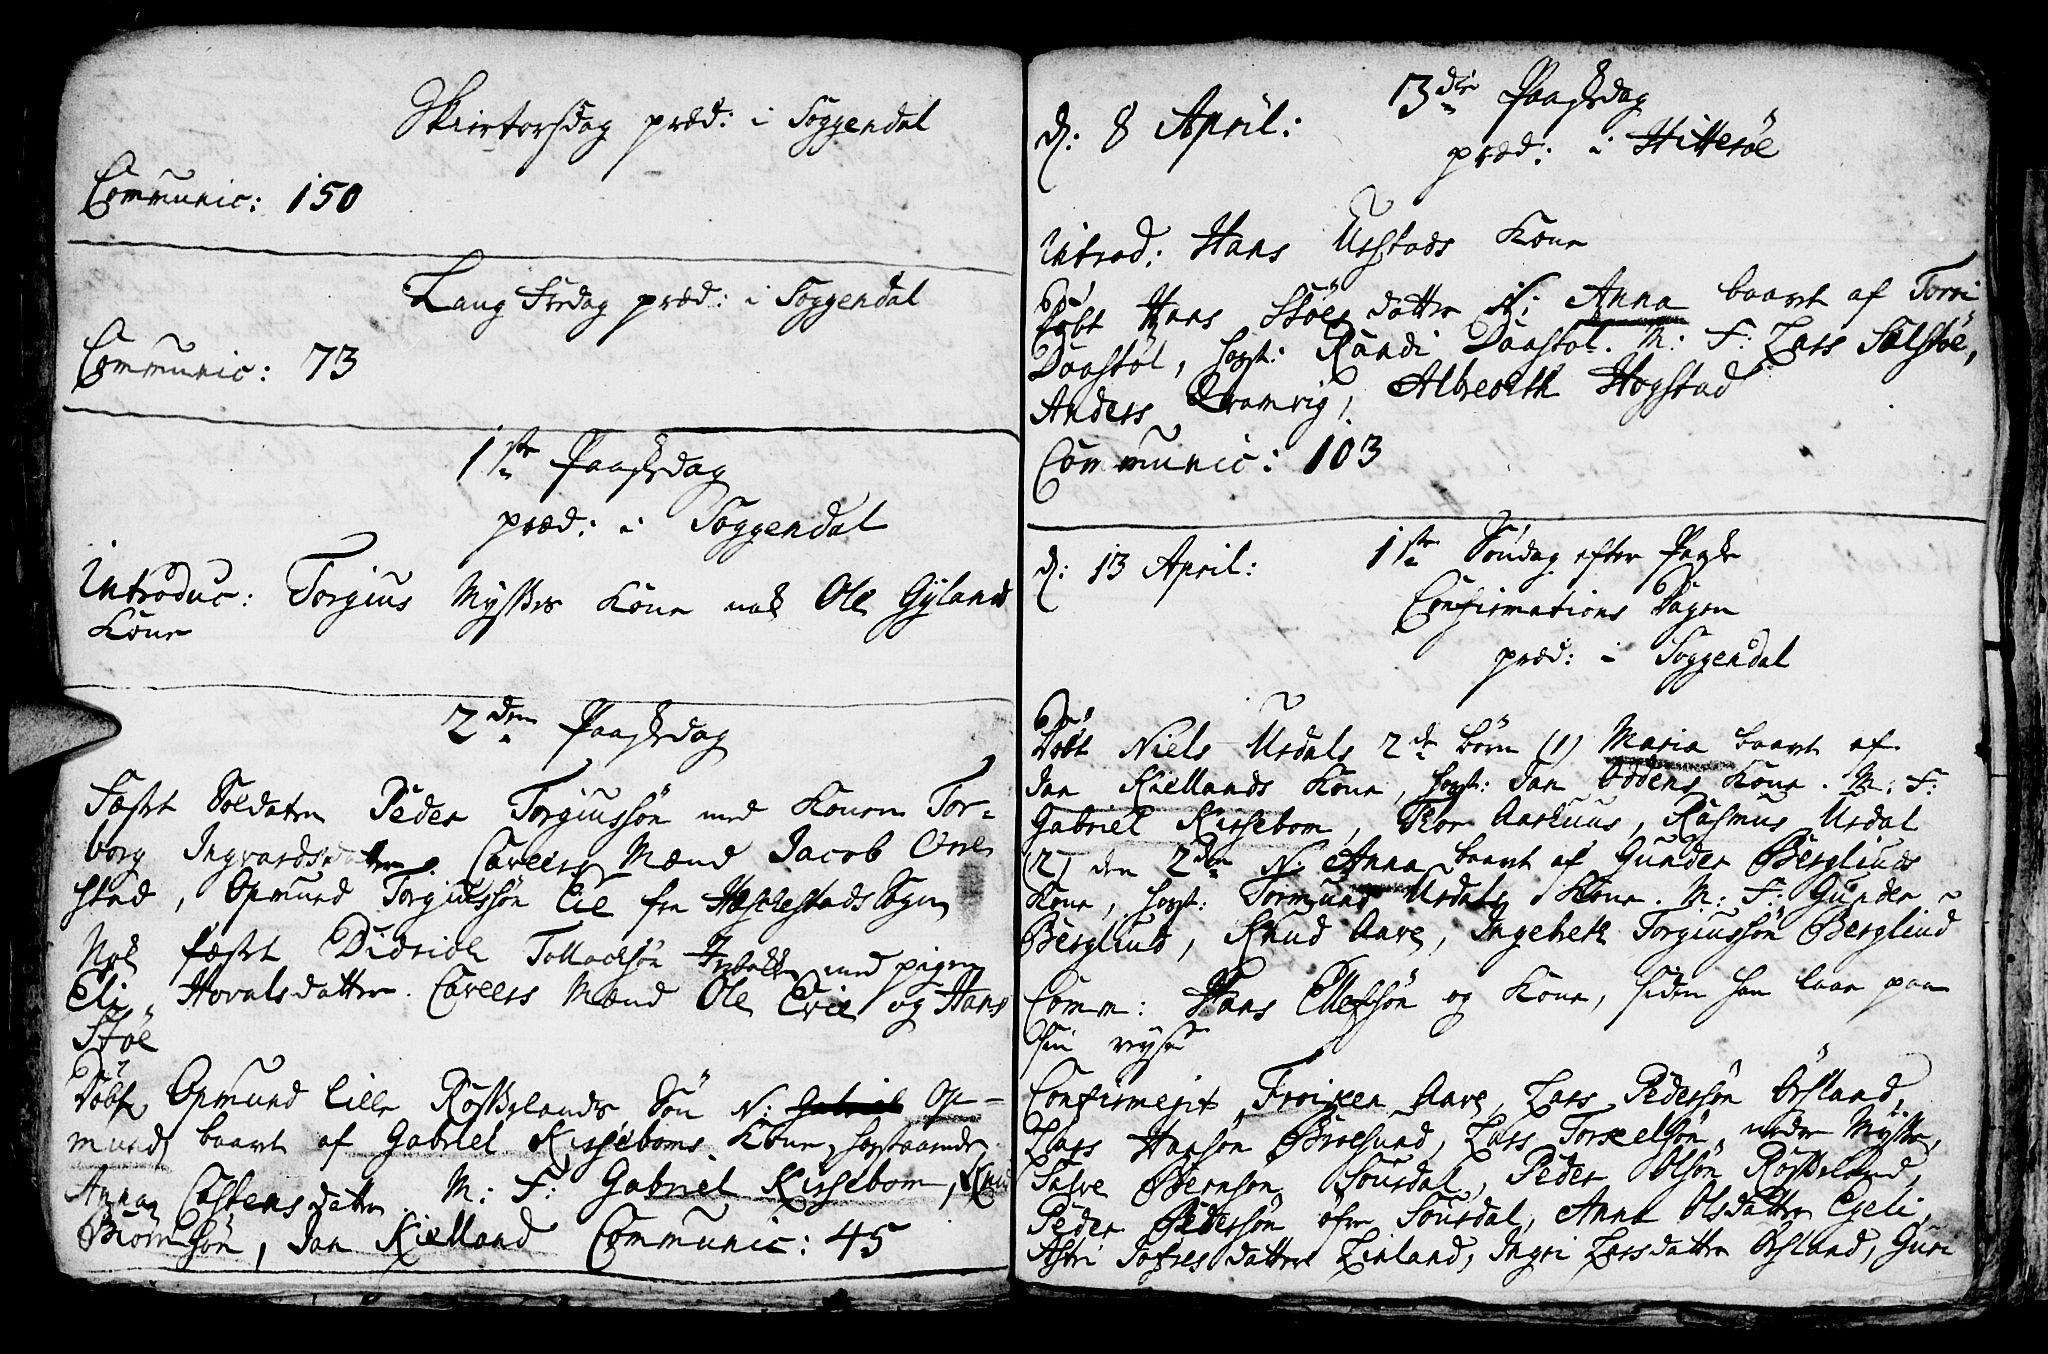 Skiertorsdag præd: i Soggendal
Communic: 150
Lang Fredag præd: i Soggendal
Communic: 73
1ste Paaskedag
præd: i Soggendal
Introduc: Torgius Mysses Kone nok Ole Gyland
Kone
2den Paaskedag
Fæstet Soldaten Peder Torgiussøn med Konen Tor=
borg Ingvardsdatter. Caveers Mænd Jacob Orre
stad, Opmund Torgiussøn Eie fra Heschestads Sogn
Nok fæstet Didrich Tollacksøn med pigen
Eli Hovalsdatter. Caveers Mænd Ole Evie og Hans
Støe
Døbt Opmund lille Røsslands Søn N: Gabriel Op-
mund baaret af Gabriel Kirseboms Kone, hosstaaende
Anna Castensdatter. M: F: Gabriel Kirsebom, Knud
Biørnsøn, Jan Kielland Communic: 45
d: 8 April: 3die Paaskedag
præd: i Hitterøe
Introd: Hans Urstads Kone
Døbt Hans Støes datter N: Anna baaret af Torri
Daastøl, host: Randi Daastøl. M: F: Lars Salstøe,
Anders Qvamvig, Albreckt Hogstad
Communic: 103
d: 13 April: 1ste Søndag efter Paaske
Confirmations Dagen
præd: i Soggendal
Døbt Niels Urdals 2de børn (1) Maria baaret af
Jan Kiellands Kone, host: Jan Oddens Kone. M: F:
Gabriel Kirsebom, Thor Aarhuus, Rasmus Urdal
2) den 2den N: Anna baaret af Gunder Berglinds
Kone, host: Tormund Urdals Kone. M: F: Gunder
Berglind, Knud Aare, Ingebret Torgiussøn Berglind
Comm: Hans Ellefsøn og Kone, siden han laae paa
sin reyse
Confirmerit Froiken Aare, Lars Pedersøn Ørsland,
Lars Hansøn Broesund, Lars Torkelsøn nedre Mysse,
Salve Bernsøn Sousdal, Peder Olsøn Røssland,
Peder Pedersøn øfre Sousdal, Anna Olsdatter Egeli,
Astri Sofresdatter Linland, Ingri Larsdatter Ørsland, Guri